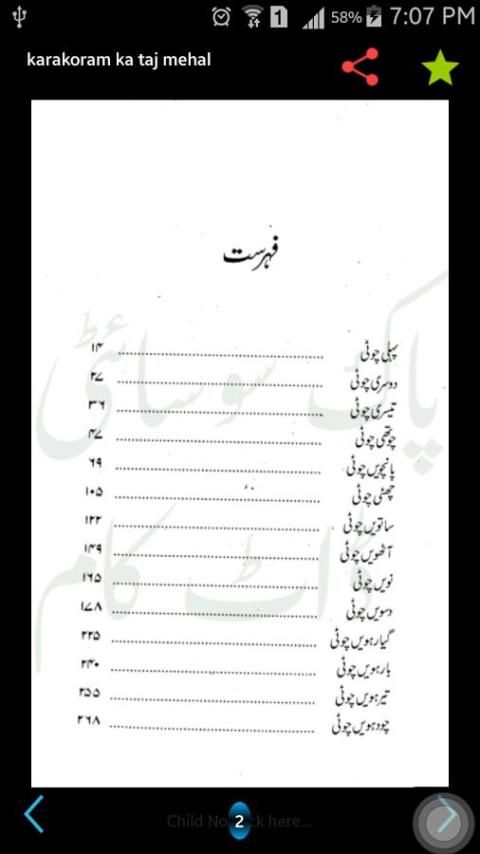 58% 7:07 PM
karakoram ka taj mehal
فہرست
پہلی چوٹی ۱۴
دوسری چوٹی ۲۷
تیسری چوٹی ۳۶
چوتھی چوٹی ۴۷
پانچویں چوٹی ۶۹
چھٹی چوٹی ۱۰۵
ساتویں چوٹی ۱۲۲
آٹھویں چوٹی ۱۴۹
نویں چوٹی ۱۶۵
دسویں چوٹی ۱۷۸
گیارہویں چوٹی ۲۲۵
بارہویں چوٹی ۲۴۰
تیرہویں چوٹی ۲۵۵
چودہویں چوٹی ۲۶۸
پاک سوسائٹی
ڈاٹ کام
2